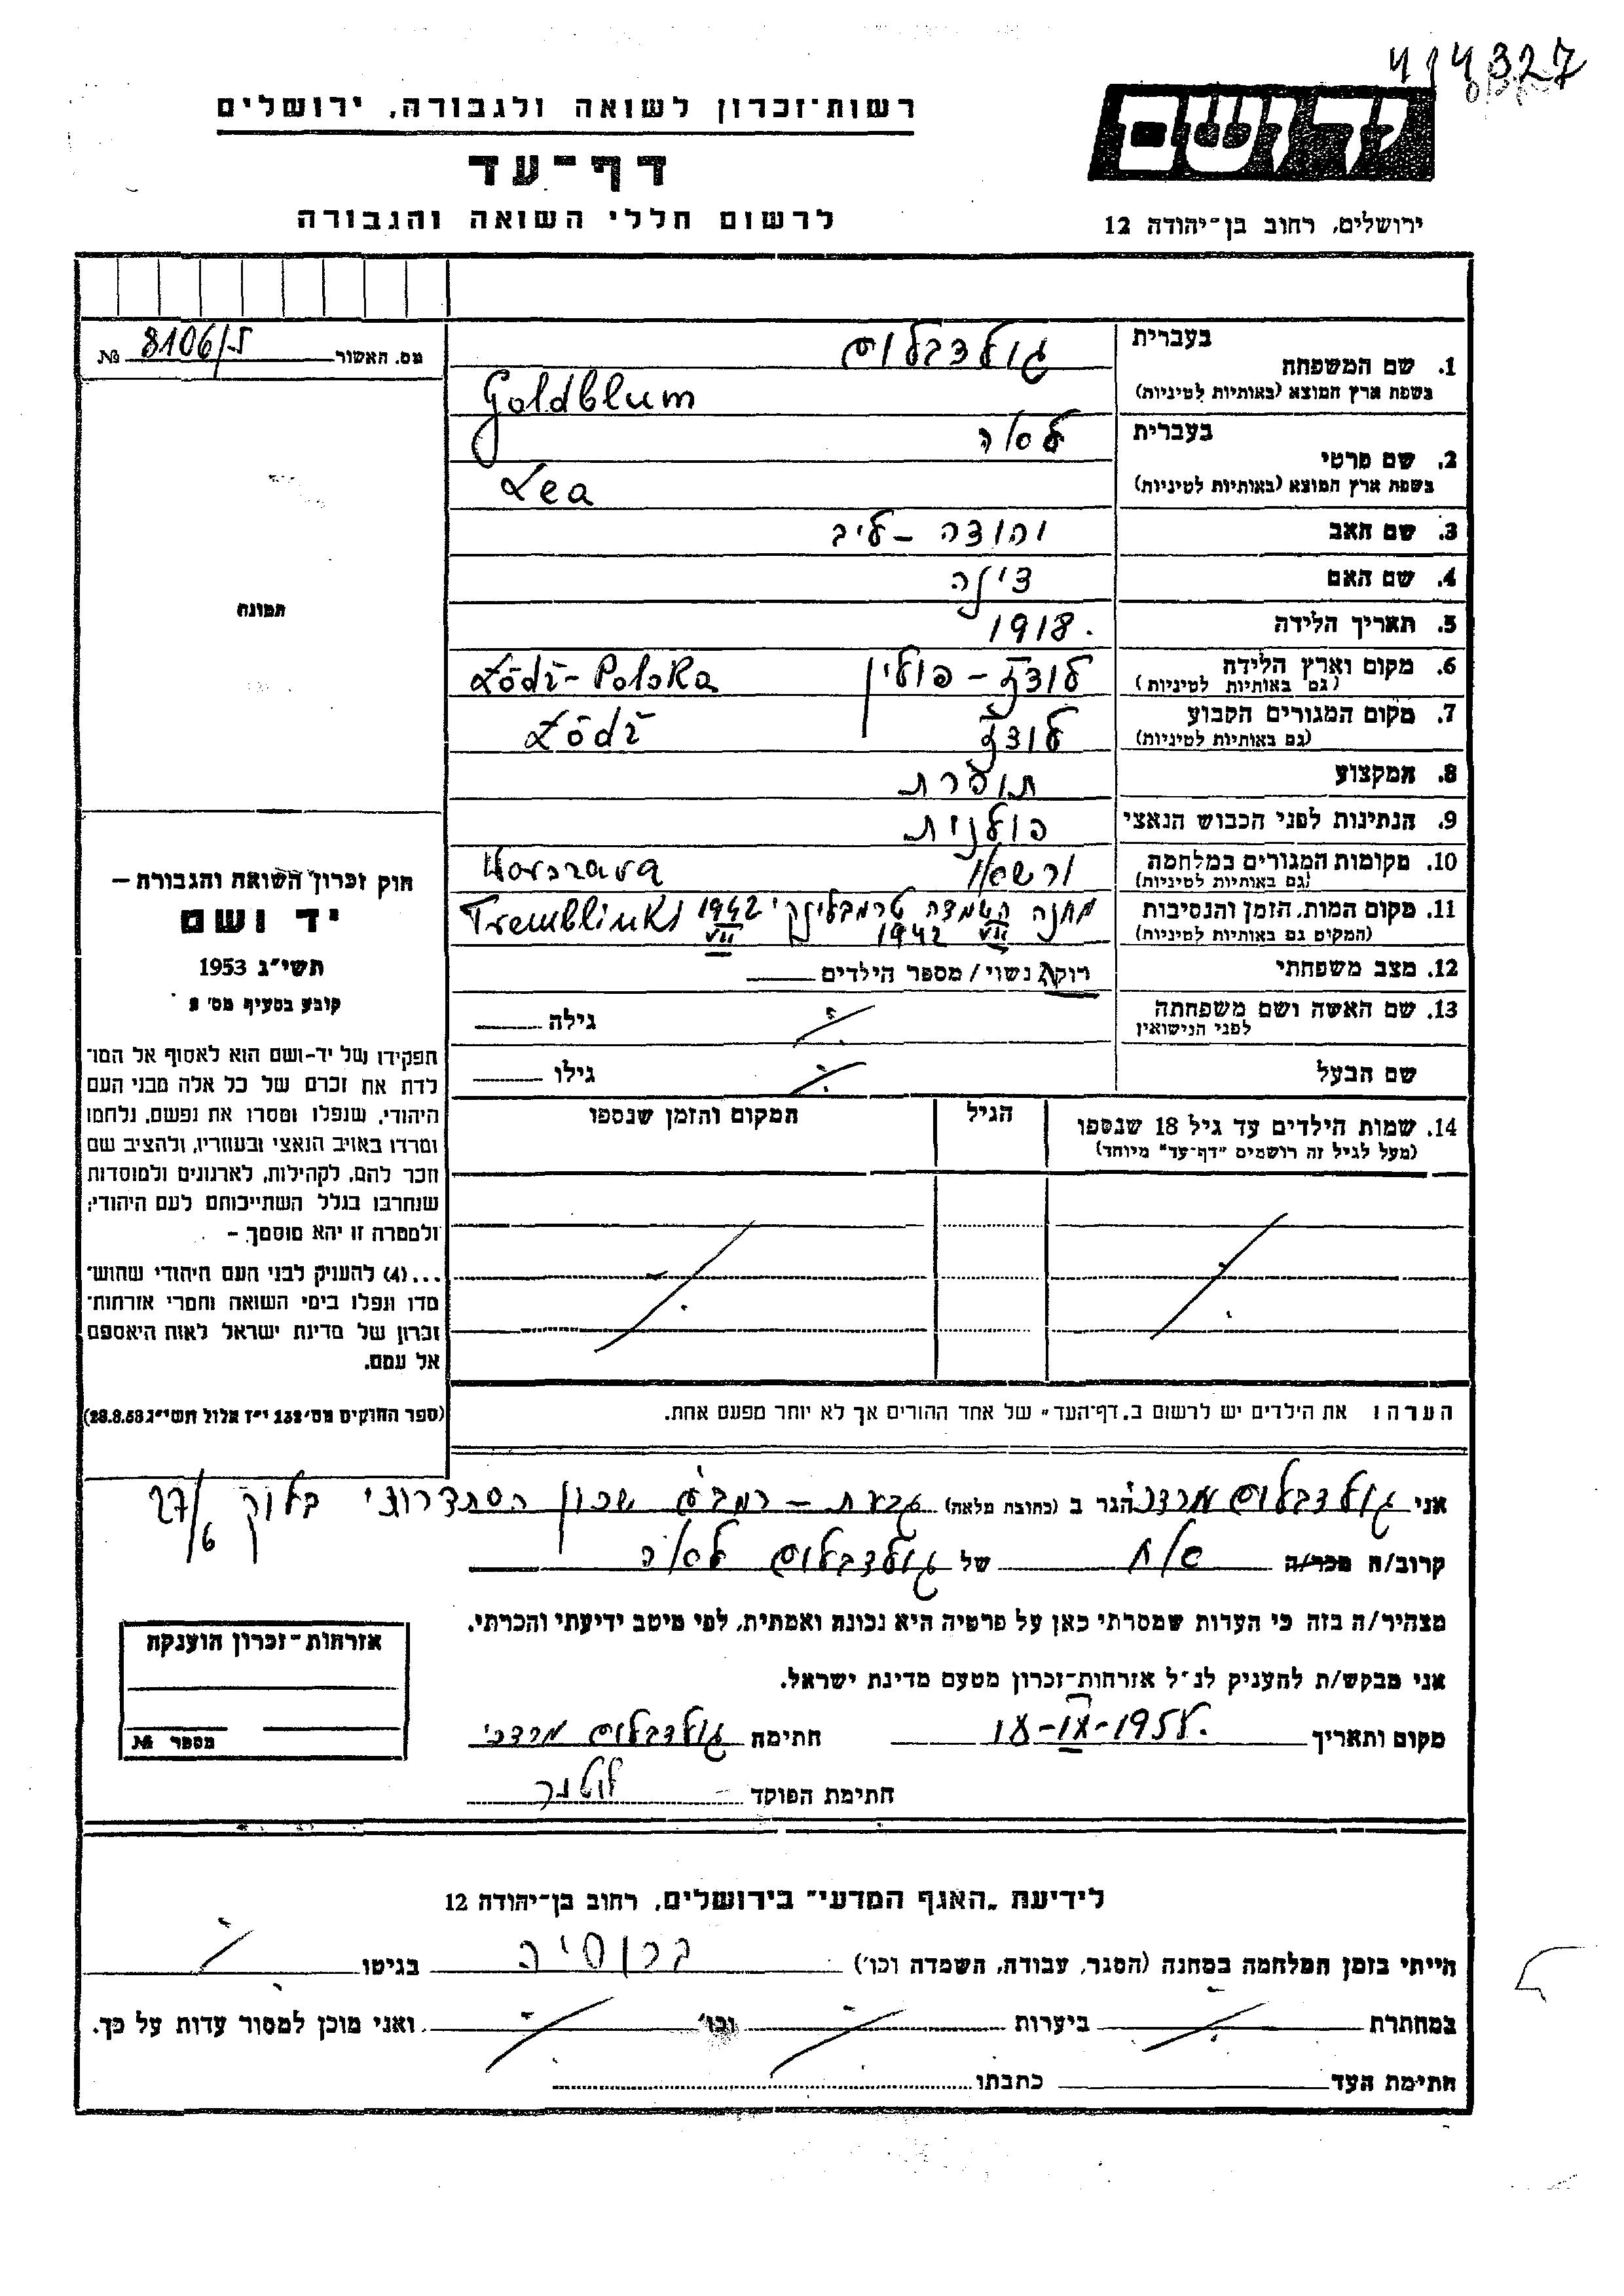 414327
רשות־זכרון לשואה ולגבורה, ירושלים
דף־עד
לרשום חללי השואה והגבורה
יד ושם
ירושלים, רחוב בן־יהודה 12
מס. האשור № 8106/ל
תמונה
חוק זכרון השואה והגבורה –
יד ושם
תשי״ג 1953
קובע בסעיף מס׳ 2
תפקידו של יד-ושם הוא לאסוף אל המו־
לדת את זכרם של כל אלה מבני העם
היהודי, שנפלו ומסרו את נפשם, נלחמו
ומרדו באויב הנאצי ובעוזריו, ולהציב שם
וזכר להם, לקהילות, לארגונים ולמוסדות
שנחרבו בגלל השתייכותם לעם היהודי;
ולמטרה זו יהא מוסמך –
...(4) להעניק לבני העם היהודי שהוש־
מדו ונפלו בימי השואה והמרי אזרחות־
זכרון של מדינת ישראל לאות היאספם
אל עמם.
(ספר החוקים מס׳ 132 י״ז אלול תשי״ג 28.8.53)
1. שם המשפחה בעברית גולדבלום
בשפת ארץ המוצא (באותיות לטיניות) Goldblum
2. שם פרטי בעברית לאה
בשפת ארץ המוצא (באותיות לטיניות) Lea
3. שם האב יהודה – ליב
4. שם האם צינה
5. תאריך הלידה 1918.
6. מקום וארץ הלידה לודז – פולין Łódź - Polska
(גם באותיות לטיניות)
7. מקום המגורים הקבוע לודז Łódź
(גם באותיות לטיניות)
8. המקצוע תופרת
9. הנתינות לפני הכבוש הנאצי פולנית
10. מקומות המגורים במלחמה Warszava
(גם באותיות לטיניות)
11. מקום המות, הזמן והנסיבות מחנה השמדה טרמבלינקי 1942 Tremblinki
(המקום גם באותיות לטיניות) VII 1942 VII
12. מצב משפחתי רוקה נשוי / מספר הילדים
13. שם האשה ושם משפחתה גילה
לפני הנישואין
שם הבעל גילו
14. שמות הילדים עד גיל 18 שנספו הגיל המקום והזמן שנספו
(מעל לגיל זה רושמים "דף־עד" מיוחד)
הערה: את הילדים יש לרשום ב„דף־העד״ של אחד ההורים אך לא יותר מפעם אחת.
אני גולדבלום מרדכי הגר ב (כתובת מלאה) גבעת – רמב״ם שכון הסתדרותי בלוק 27/6
קרוב/ה מכר/ה אח של גולדבלום לאה
מצהיר/ה בזה כי העדות שמסרתי כאן על פרטיה היא נכונה ואמתית, לפי מיטב ידיעתי והכרתי.
אני מבקש/ת להעניק לנ״ל אזרחות־זכרון מטעם מדינת ישראל.
מקום ותאריך חתימה גולדבלום מרדכי
חתימת הפוקד
אזרחות־זכרון הוענקה
מספר №
לידיעת „האגף המדעי״ בירושלים, רחוב בן־יהודה 12
הייתי בזמן המלחמה במחנה (הסגר, עבודה, השמדה וכו׳) ברוסיה בגיטו
במחתרת ביערות וכו׳ ואני מוכן למסור עדות על כך.
חתימת העד כתבתו